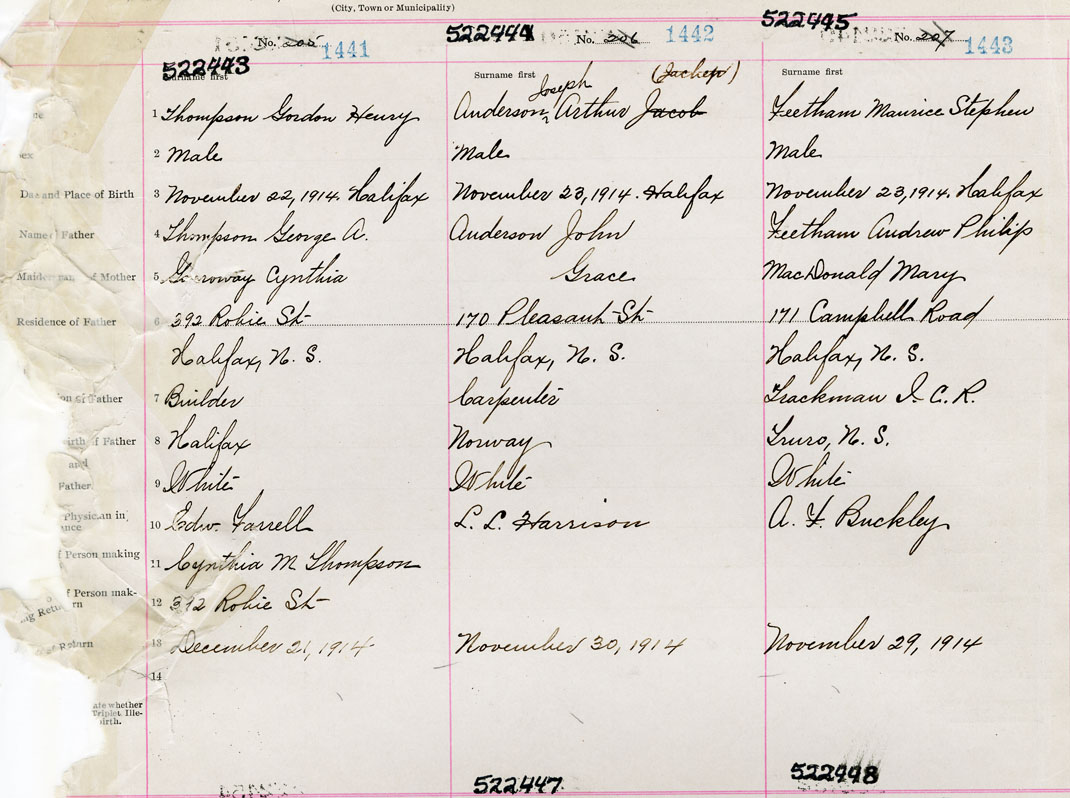 (City, Town or Municipality)
522443 522444 522445
No. 205 1441 No. 206 1442 No. 207 1443
Surname first Surname first (Jackep) Surname first
Joseph
1 Thompson Gordon Henry Anderson, Arthur Jacob Feetham Maurice Stephen
2 Male Male Male
and Place of Birth 3 November 22, 1914. Halifax November 23, 1914. Halifax November 23, 1914. Halifax
Name Father 4 Thompson George A. Anderson John Feetham Andrew Philip
Maiden of Mother 5 Cynthia Grace MacDonald Mary
Residence of Father 6 392 Robie St 170 Pleasant St 171 Campbell Road
Halifax, N. S. Halifax, N. S. Halifax, N. S.
of Father 7 Builder Carpenter Trackman I. C. R.
irth of Father 8 Halifax Norway Truro, N. S.
and
Father 9 White White White
Physician in
ance 10 Edw. Farrell L. L. Harrison A. F. Buckley
f Person making 11 Cynthia M Thompson
f Person mak-
ng Return 12 392 Robie St
Return 13 December 21, 1914 November 30, 1914 November 29, 1914
14
ate whether
Triplet Ille-
birth.
522447 522448